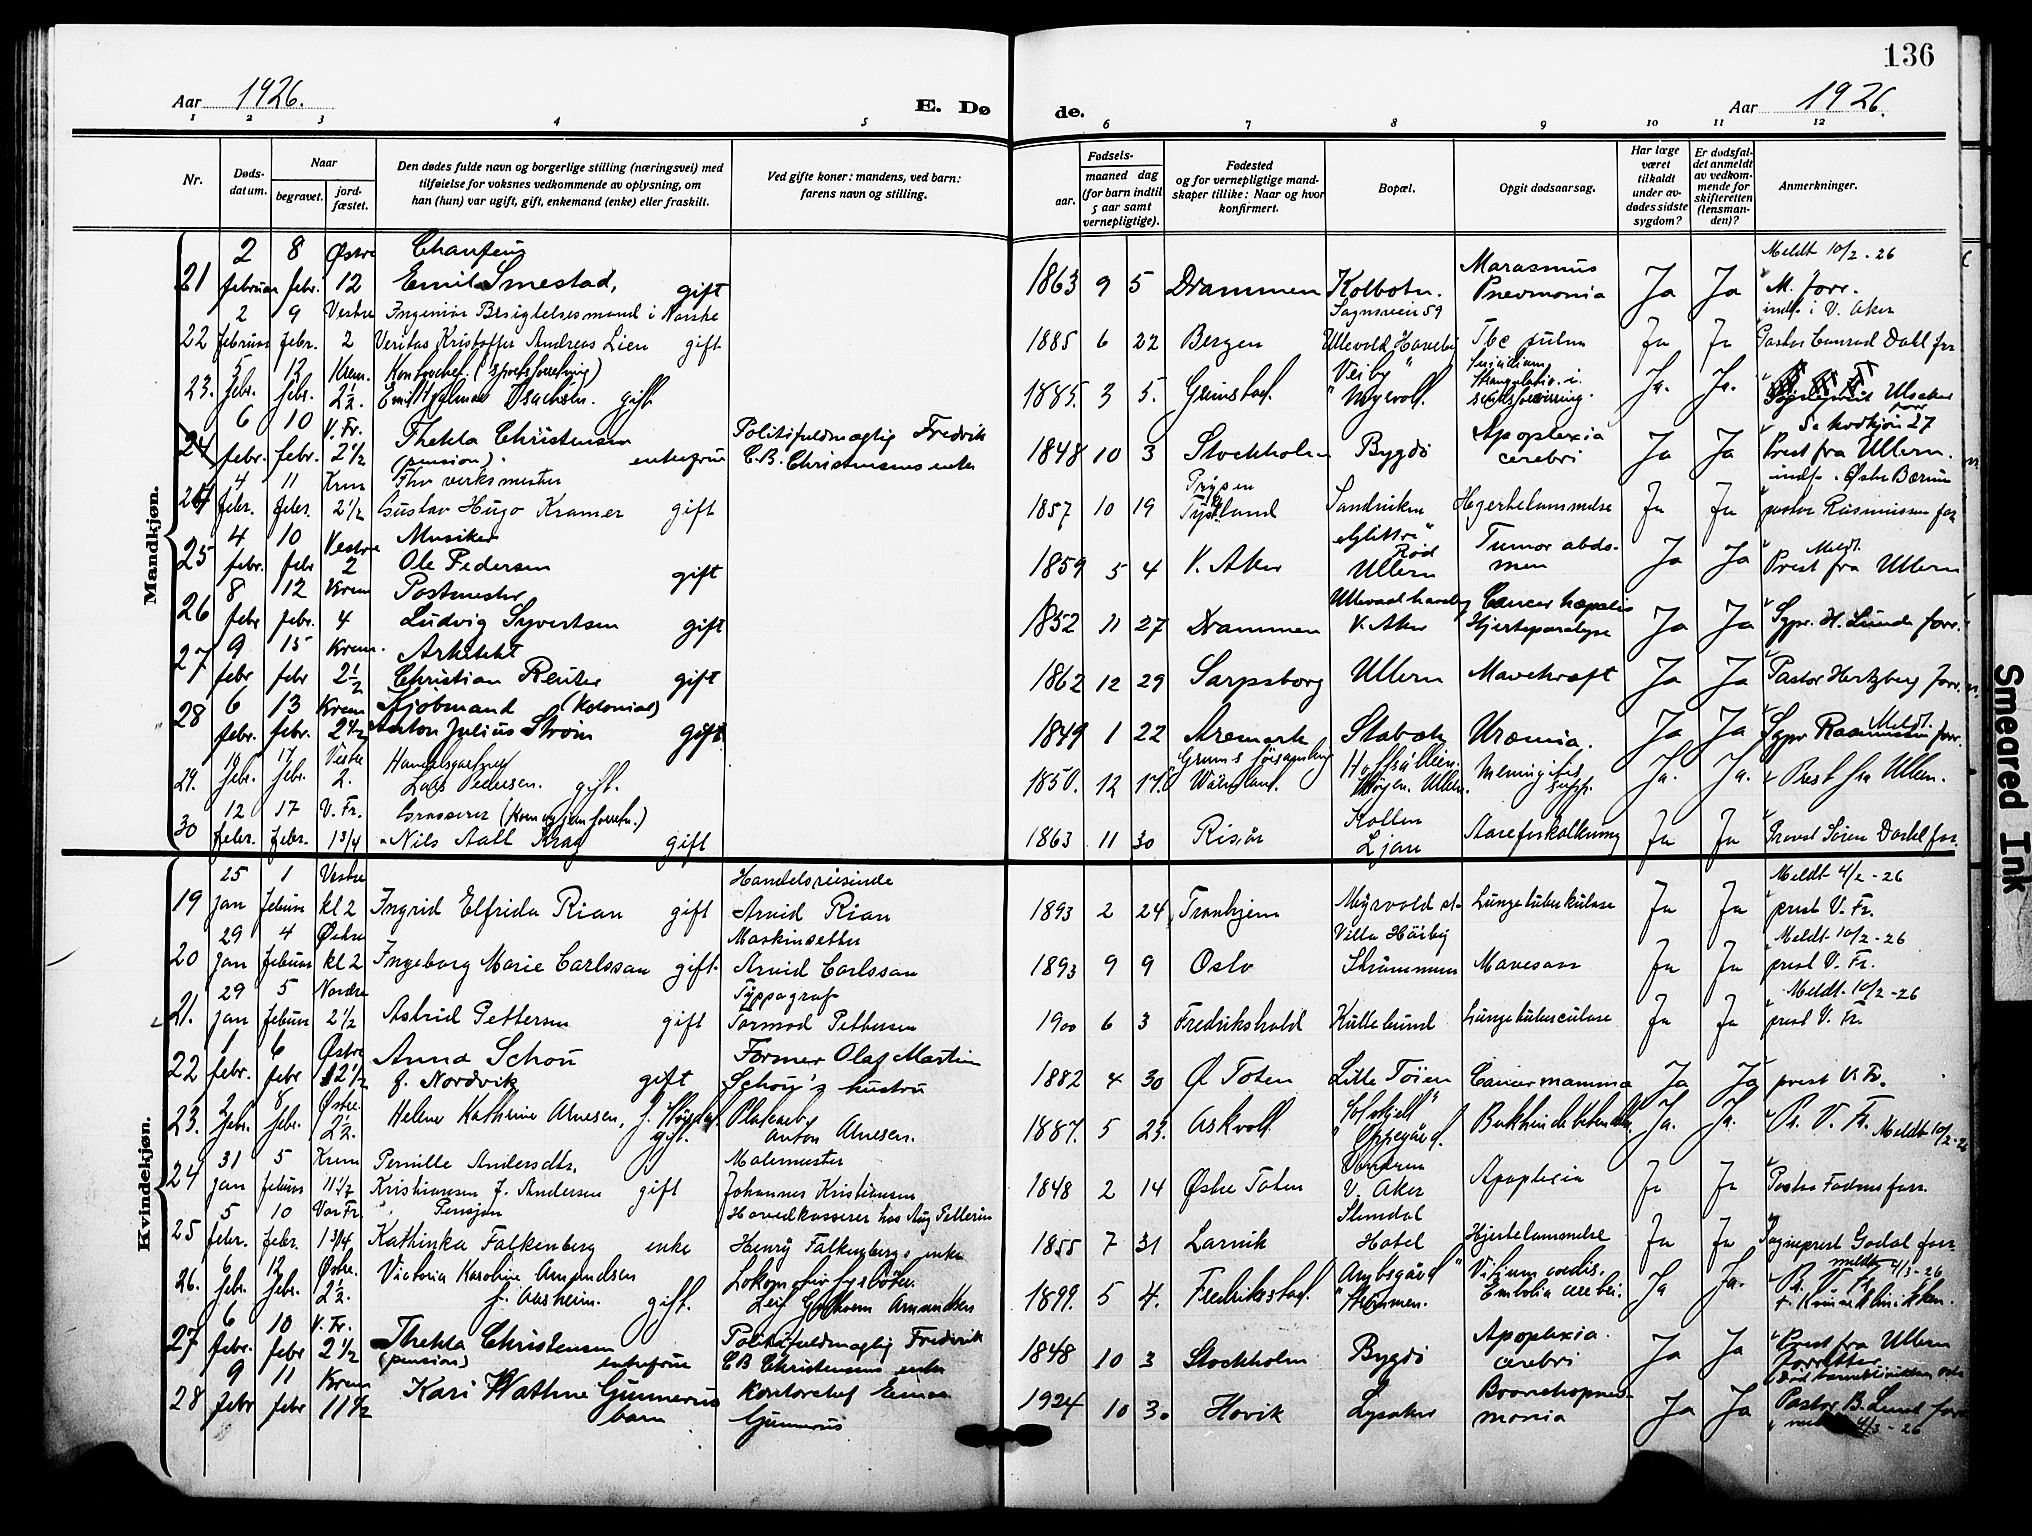 136
Aar 1926.
E. Dø
de.
Aar 1926.
1 2 3 4 5 6 7 8 9 10 11 12
Nr.
Døds-datum.
Naar
begravet.
jord-fæstet.
Den dødes fulde navn og borgerlige stilling (næringsvei) med
tilføielse for voksnes vedkommende av oplysning, om
han (hun) var ugift, gift, enkemand (enke) eller fraskilt.
Ved gifte koner: mandens, ved barn:
farens navn og stilling.
Fødsels-
aar.
maaned dag
(for barn indtil
5 aar samt
vernepligtige).
Fødested
og for vernepligtige mand-
skaper tillike: Naar og hvor
konfirmert.
Bopæl.
Opgit dødsaarsag.
Har læge
været
tilkaldt
under av-
dødes sidste
sygdom?
Er dødsfal-
det anmeldt
av vedkom-
mende for
skifteretten
(lensman-
den)?
Anmerkninger.
Mandkjøn.
21 2 februar 8 febr. Østre 12 Chaufeur Emil Smestad, gift 1863 9 5 Drammen Kolbotn. Marasmus Pneumonia Ja Ja Meldt 10/2-26 M. forr. indf. i V. Aker
22 2 februar 9 febr. Vestre 2 Ingeniør Besigtelsesmand i Norske Veritas Kristoffer Andreas Lien gift 1885 6 22 Bergen Sognsveien 59 Ullevold Haveby Tbc pulm Ja Ja Pastor Conrad Dahl forr
23. 5 febr. 12 febr. Krem. 2½. Kontorchef. gift. 1885. 3 5. Grimstad. Myrvoll. Suicidium Strangulatio. i sindsforvirring. Ja. Ja.
24 6 febr. 10 febr. V. Fr. 2½ Thekla Christensen (pension). enkefrue Politifuldmægtig Fredrik C.B. Christensens enke 1848 10 3 Stockholm Bygdö Apoplexia cerebri Ja Ja Se kvdkjön 27 Prest fra Ullern.
24 4 febr. 11 febr. Krem 2½ Fhv verksmester Gustav Hugo Kramer gift 1857 10 19 Tyskland Sandviken Hjertelammelse Ja Ja indf. Østre Bærum pastor Rasmussen forr
25 4 febr. 10 febr Vestre 2 Musiker Ole Pedersen gift 1859 5 4 V. Aker Röd Ullern Tumor abdomen Ja Ja Meldt. Prest fra Ullern
26 8 febr 12 febr. Krem 4 Postmester Ludvig Syvertsen gift 1852 11 27 Drammen Ullevaal haveby V. Aker Cancer hepatis Hjerteparalyse Ja Ja Sgpr. H. Lunde forr.
27 9 febr 15 febr Krem. 2½ Arkitekt Christian Reuter gift 1862 12 29 Sarpsborg Ullern Mavekræft Ja Ja Pastor Hertzberg forr.
28 6 febr. 13 febr. Krem 2½ Kjöbmand (Kolonial) Anton Julius Ström gift 1849 1 22 Aremark Stabæk Uræmia. Ja Ja Meldt. Sgpr Rasmussen forr.
29. febr. 17 febr. Vestre 2. Lars Pedersen. gift. 1850. 12 17. Ullern. Meningitis supp. Ja. Ja. Prest fra Ullern.
30 12 febr. 17 febr. V. Fr. 1 3/4 Grosserer (Korn og jernforretn.) Nils Aall Krag gift 1863 11 30 Risör Kollen Ljan Aareforkalkning Ja Ja Provst Sören Dahl forr.
Kvindekjøn.
19 25 jan 1 februar Vestre kl 2 Ingrid Elfrida Rian gift Handelsreisende Arvid Rian 1893 2 24 Trondhjem Myrvold st. Lungetuberkulose Ja Ja Meldt 4/2-26 prest V. Fr.
20 29 jan 4 februar Østre kl 2 Ingeborg Marie Carlsson gift. Maskinsetter Arvid Carlsson 1893 9 9 Oslo Villa Höibig Strømmen Mavesaar Ja Ja Meldt 10/2-26 prest V. Fr.
21. 29 jan 5 februar Nordre 2½ Astrid Pettersen gift Typograf Tormod Pettersen 1900 6 3 Fredrikshald Kullebund Lungetuberculose Ja Ja Meldt. 10/2-26 prest V. Fr.
22 1 febr. 6 febr Østre 12½ Anna Schou f. Nordvik gift Former Olaf Martin Schou's hustru 1882 4 30 Ø Toten Lille Töien Cancer mamma Ja Ja prest V. Fr.
23. 2 febr. 8 febr. Østre. 2½. Helene Kathrine Arnesen, gift. Anton Arnesen. 1887. 5 23. Askvoll Solskjell Oppegård. Bukhindebetendelse. Ja. Ja. Pr. V. Fr. Meldt 10/2-26
24 31 jan 5 februar Krem 11½ Pernille Andersdtr. Kristiansen f. Andersen gift Malermester Johannes Kristiansen 1848 2 14 Østre Toten V. Aker Apoplexia Ja Ja Pastor forr.
25 5 febr. 10 febr. Vor Fr 1 3/4 Pensjon Kathinka Falkenberg enke Hovedkasserer hos Aug Pellerin Henry Falkenbergs enke 1855 7 31 Larvik Slemdal Hotel Hjertelammelse Ja Ja Sogneprest Godal forr.
26. 6 febr. 12 febr. Østre. 2½. Victoria Karoline Amundsen f. Aasheim. gift. Lokomotivfyrböter. Leif Amundsen 1899. 5 4. Fredrikstad. Strømmen. Vitium cordis. Embolia cerebri. Ja Ja. meldt 4/3-26 Pr. V. Fr. + Kvindeklinikken.
27 6 febr. 10 febr V. Fr. 2½ Thekla Christensen (pension) enkefrue Politifuldmægtig Fredrik C B Christensens enke 1848 10 3 Stockholm Bygdö Apoplexia. cerebri Ja Ja Prest fra Ullern forretter.
28 9 febr 11 febr Krem 11½ Kari Wathne Gunnerus barn Kontorchef Einar Gunnerus 1924 10 30 Hovik Lysaker Bronchopneumonia Ja Ja Död barneklinikken Oslo Pastor B. Lund forr 4/3-26
Smeared Ink